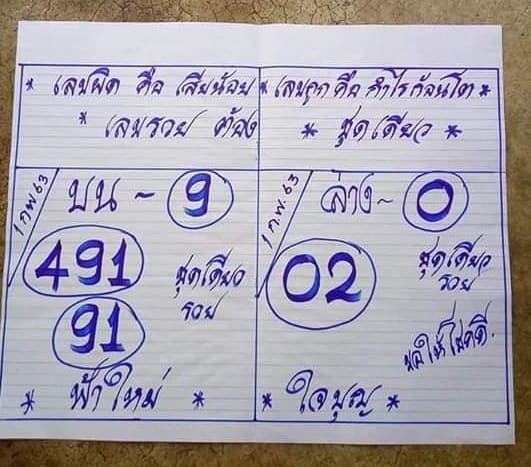 * เลขผิด คือ เสียน้อย * เลขถูก คือ กำไรก้อนโต *
* เลขรวย ต้อง * ชุดเดียว *
1 กพ 63
บน ~ 9
491
ชุดเดียว
รวย
91
* ฟ้าใหม่ *
1 กพ. 63
ล่าง ~ 0
02
ชุดเดียว
รวย
ขอให้โชคดี.
* ใจบุญ *